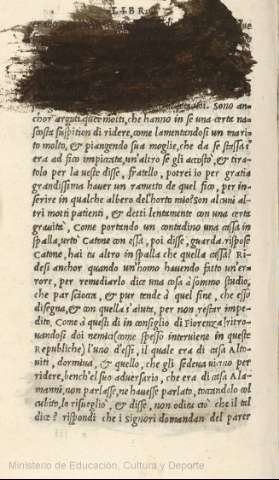 LIBR
Sono an-
chor arguti quei motti, che hanno in se una certa na-
scosta suspition di ridere, come lamentandosi un mari-
to molto, & piangendo sua moglie, che da se stessa s'
era ad un fico impiccata, un'altro se gli accostò, & tira-
tolo per la ueste disse, fratello, potrei io per gratia
grandissima hauer un rametto de quel fico, per in-
serire in qualche albero dell'horto mio? Son alcuni al-
tri motti patienti, & detti lentamente con una certa
grauità, Come portando un contadino una cassa in
spalla, urtò Catone con essa, poi disse, guarda. rispose
Catone, hai tu altro in spalla che quella cassa? Ri-
desi anchor quando un'homo hauendo fatto un'er-
rore, per remediarlo dice una cosa à sommo studio,
che par sciocca, & pur tende à quel fine, che esso
disegna, & con quella s'aiuta, per non restar impe-
dito. Come à questi dì in consiglio di Fiorenza ritro-
uandosi doi nemici (come spesso interuiene in queste
Republiche) l'uno d'essi, il quale era di casa Alto-
uiti, dormiua, & quello, che gli sedeua uicino per
ridere, bench'el suo aduersario, che era di casa Ala-
manni, non parlasse, ne hauesse parlato, toccandolo col
cubito, lo risuegliò, & disse, non odi tu ciò che il tal
dice? rispondi che i signori domandan del parer
Ministerio de Educación, Cultura y Deporte